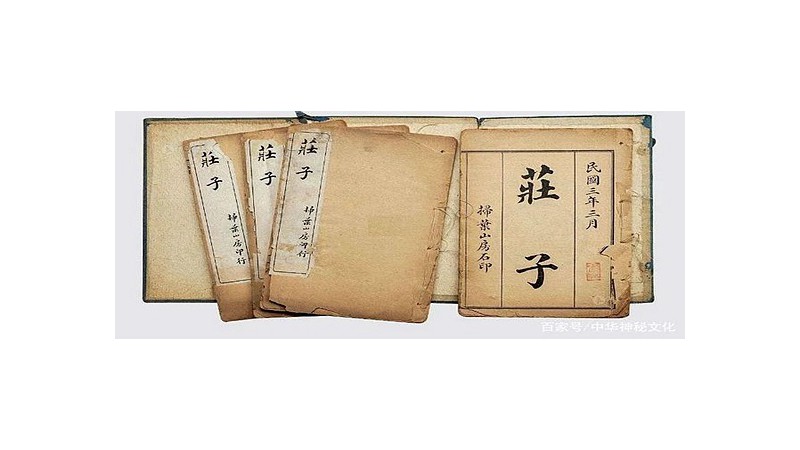 莊子
掃葉山房印行
莊子
莊子
掃葉山房印行
民國三年三月
莊子
掃葉山房石印
百家号/中华神秘文化